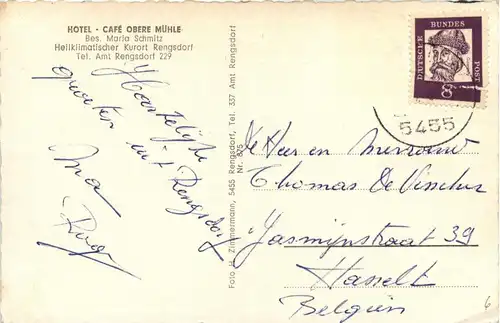 HOTEL · CAFÉ OBERE MÜHLE
Bes. Maria Schmitz
Heilklimatischer Kurort Rengsdorf
Tel. Amt Rengsdorf 229
Hartelijke
groeten uit Rengsdorf
Foto H. Zimmermann, 5455 Rengsdorf, Tel. 337 Amt Rengsdorf
Nr. 675
DEUTSCHE BUNDESPOST
8
5455
De Heer en mevrouw
Thomas De
Jasmijnstraat 39
Hasselt
Belgien
6